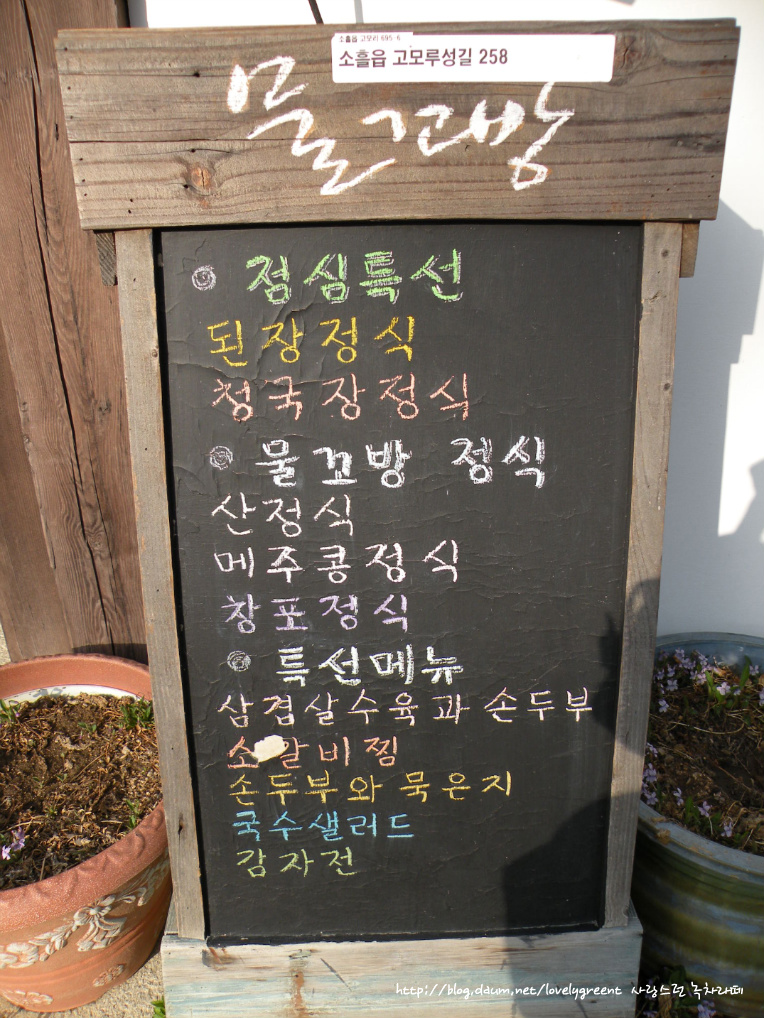 소흘읍 고모리 695-6
소흘읍 고모루성길 258
물꼬방
점심특선
된장정식
청국장정식
물꼬방 정식
산정식
메주콩정식
창포정식
특선메뉴
삼겹살수육과 손두부
소갈비찜
손두부와 묵은지
국수샐러드
감자전
http://blog.daum.net/lovelygreent 사랑스런 녹차라떼